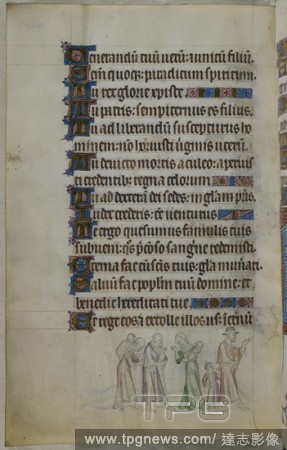 Venerandū tuū uerū: ⁊ unicū filiū.
Sc̄m quoq; paraclitum spiritum.
Tu rex glorie xpiste
Tu patris: sempiternus es filius.
Tu ad liberandū suscepturus ho
minem: nō horruisti uirginis uterū.
Tu deuicto mortis aculeo: aperuis
ti credentib; regna celorum
Tu ad dexterā dei sedes: in glā pris.
Iudex crederis: ee uenturus
Te ergo quesumus famulis tuis
subueni: q̄s p̄cioso sanguīe redemisti.
Eterna fac cū sc̄is tuis: glā munari.
Saluū fac populū tuū domine: et
benedic hereditati tue
Et rege eos: ⁊ extolle illos: usq; ī etnū
TPG
www.tpgnews.com / 達志影像